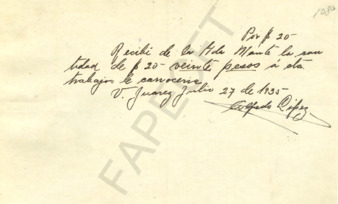 1030
Por $ 20-
Recibí de la Hda Mante la can
tidad de $ 20- veinte pesos a cta
trabajos de carvoceria
V. Juarez Julio 27 de 1935
Alfredo López
FAPECFT